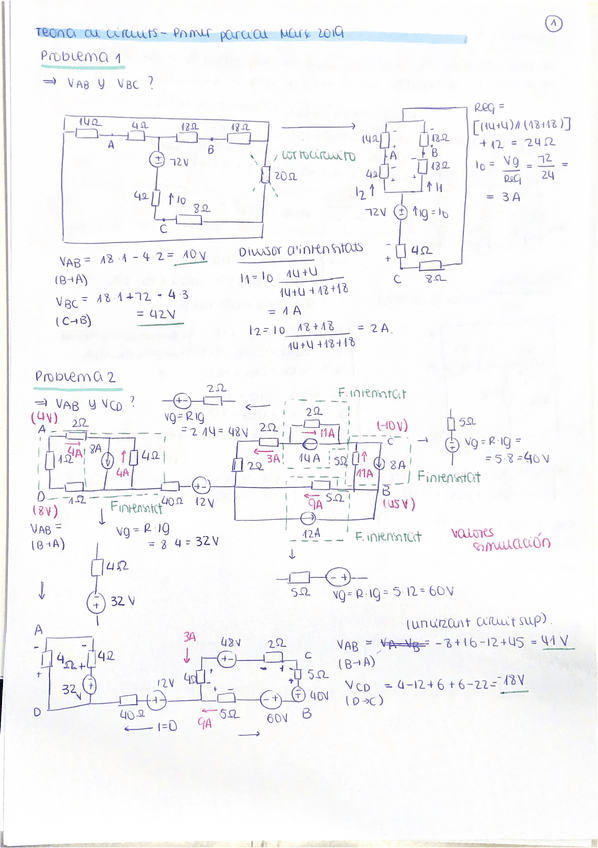 Teoria de circuits - Primer parcial Març 2019
1
Problema 1
⇒ VAB y VBC ?
14Ω 4Ω 18Ω 18Ω
A B
72V
4Ω ↑I0
8Ω
C
cortocircuito
20Ω
14Ω 18Ω
A B
4Ω 18Ω
I2↑ ↑I1
72V ↑Ig=I0
4Ω
C 8Ω
REQ =
[(14+4)//(18+18)]
+ 12 = 24Ω
I0 = Vg/REQ = 72/24 =
= 3A
VAB = 18·1 - 4·2 = 10V
(B→A)
VBC = 18·1+72-4·3
(C→B) = 42V
Divisor d'intensitats
I1 = I0 (14+4)/(14+4+18+18)
= 1A
I2 = I0 (18+18)/(14+4+18+18) = 2A.
Problema 2
⇒ VAB y VCD ?
2Ω
Vg=RIg
= 2·14 = 48V
F.intensitat
(4V)
A 2Ω
4A 8A 4A 4Ω
1Ω
D 1Ω
(8V)
F.intensitat
40Ω 12V
2Ω 2Ω
3A 11A
2Ω 14A
5Ω 11A 8A
(-10V)
C
B
(45V)
5Ω
9A
12A
F.intensitat
F.intensitat
5Ω
Vg=R·Ig=
= 5·8 = 40V
valores simulación
VAB =
(B→A)
Vg = R·Ig
= 8·4 = 32V
4Ω
32V
5Ω Vg = R·Ig = 5·12 = 60V
A
4Ω 4Ω
32V
D
40Ω 12V
I=0
3A
48V 2Ω C
4Ω 5Ω
40V
9A 5Ω 60V B
(utilitzant circuit sup).
VAB = VA-VB = -8+16-12+45 = 41V
(B→A)
VCD = 4-12+6+6-22 = -18V
(D→C)